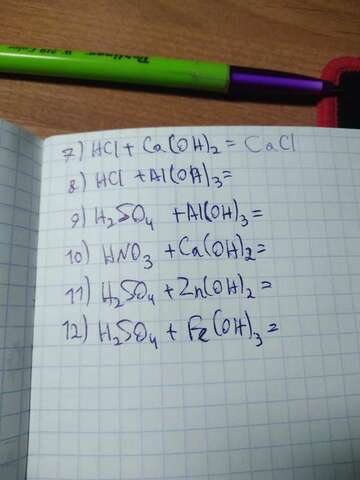 7) HCl + Ca(OH)₂ = CaCl
8) HCl + Al(OH)₃=
9) H₂SO₄ + Al(OH)₃=
10) HNO₃ + Ca(OH)₂=
11) H₂SO₄ + Zn(OH)₂=
12) H₂SO₄ + Fe(OH)₃=